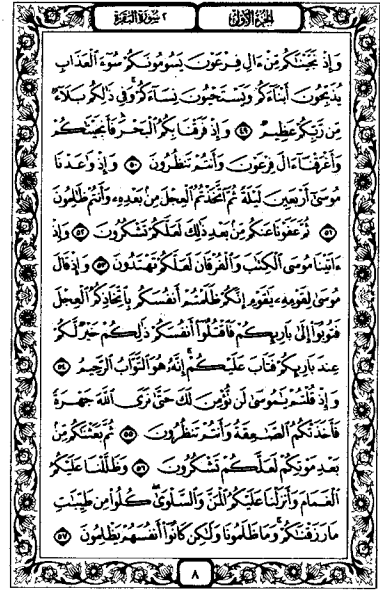 الجزء الأول ٢ سورة البقرة
وَإِذْ نَجَّيْنَٰكُم مِّنْ ءَالِ فِرْعَوْنَ يَسُومُونَكُمْ سُوٓءَ ٱلْعَذَابِ
يُذَبِّحُونَ أَبْنَآءَكُمْ وَيَسْتَحْيُونَ نِسَآءَكُمْ وَفِى ذَٰلِكُم بَلَآءٌ
مِّن رَّبِّكُمْ عَظِيمٌ ٤٩ وَإِذْ فَرَقْنَا بِكُمُ ٱلْبَحْرَ فَأَنجَيْنَٰكُمْ
وَأَغْرَقْنَآ ءَالَ فِرْعَوْنَ وَأَنتُمْ تَنظُرُونَ ٥٠ وَإِذْ وَٰعَدْنَا
مُوسَىٰٓ أَرْبَعِينَ لَيْلَةً ثُمَّ ٱتَّخَذْتُمُ ٱلْعِجْلَ مِنۢ بَعْدِهِۦ وَأَنتُمْ ظَٰلِمُونَ
٥١ ثُمَّ عَفَوْنَا عَنكُم مِّنۢ بَعْدِ ذَٰلِكَ لَعَلَّكُمْ تَشْكُرُونَ ٥٢ وَإِذْ
ءَاتَيْنَا مُوسَى ٱلْكِتَٰبَ وَٱلْفُرْقَانَ لَعَلَّكُمْ تَهْتَدُونَ ٥٣ وَإِذْ قَالَ
مُوسَىٰ لِقَوْمِهِۦ يَٰقَوْمِ إِنَّكُمْ ظَلَمْتُمْ أَنفُسَكُم بِٱتِّخَاذِكُمُ ٱلْعِجْلَ
فَتُوبُوٓا۟ إِلَىٰ بَارِئِكُمْ فَٱقْتُلُوٓا۟ أَنفُسَكُمْ ذَٰلِكُمْ خَيْرٌ لَّكُمْ
عِندَ بَارِئِكُمْ فَتَابَ عَلَيْكُمْ إِنَّهُۥ هُوَ ٱلتَّوَّابُ ٱلرَّحِيمُ ٥٤
وَإِذْ قُلْتُمْ يَٰمُوسَىٰ لَن نُّؤْمِنَ لَكَ حَتَّىٰ نَرَى ٱللَّهَ جَهْرَةً
فَأَخَذَتْكُمُ ٱلصَّٰعِقَةُ وَأَنتُمْ تَنظُرُونَ ٥٥ ثُمَّ بَعَثْنَٰكُم مِّنۢ
بَعْدِ مَوْتِكُمْ لَعَلَّكُمْ تَشْكُرُونَ ٥٦ وَظَلَّلْنَا عَلَيْكُمُ
ٱلْغَمَامَ وَأَنزَلْنَا عَلَيْكُمُ ٱلْمَنَّ وَٱلسَّلْوَىٰ كُلُوا۟ مِن طَيِّبَٰتِ
مَا رَزَقْنَٰكُمْ وَمَا ظَلَمُونَا وَلَٰكِن كَانُوٓا۟ أَنفُسَهُمْ يَظْلِمُونَ ٥٧
٨